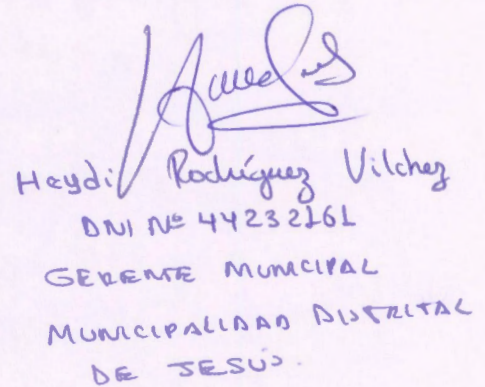 Haydi Rodríguez Vilchez
DNI Nº 44232161
GERENTE MUNICIPAL
MUNICIPALIDAD DISTRITAL
DE JESUS.